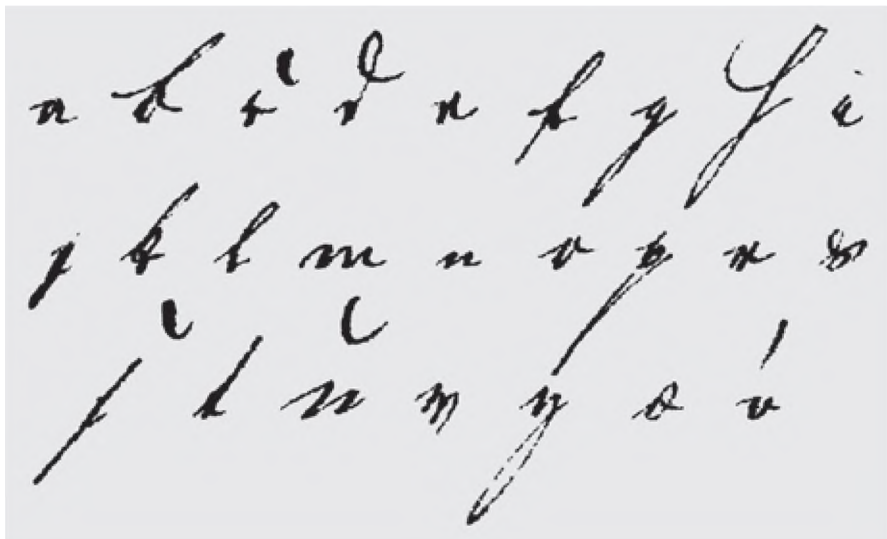 a b č d e f g h i
j k l m n o p r s
ſ̌ t u w y z ó